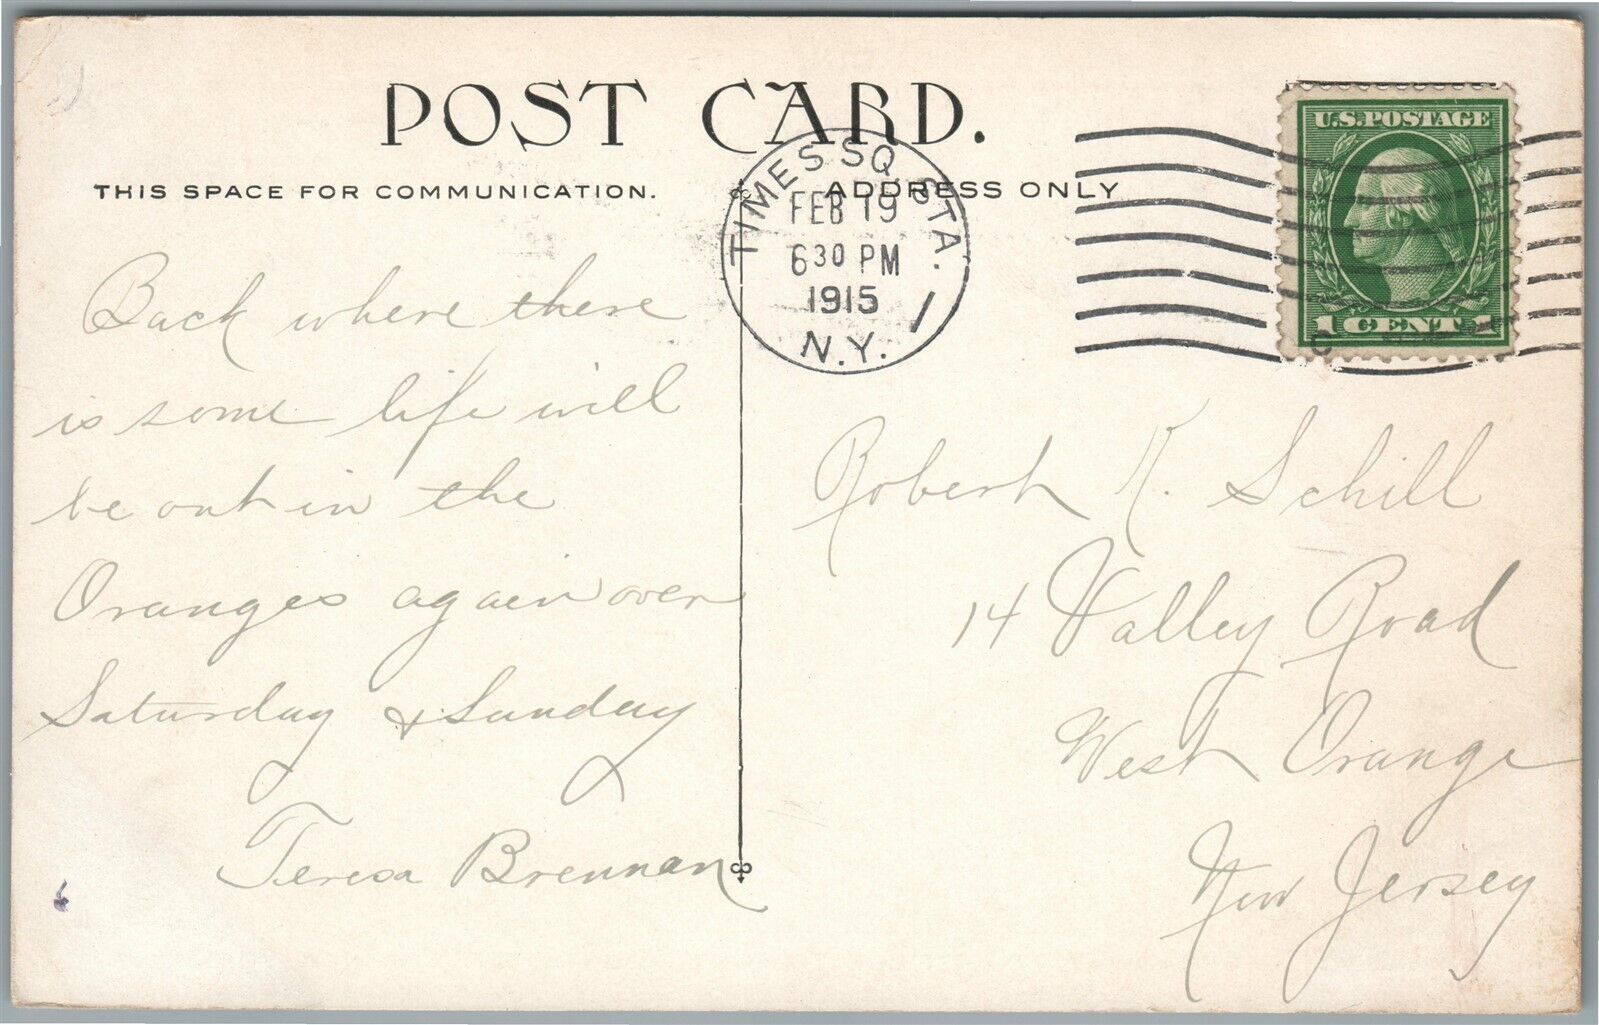 POST CARD.
THIS SPACE FOR COMMUNICATION.
ADDRESS ONLY
TIMES SQ. STA.
FEB 19
6 30 PM
1915
N.Y.
1
U.S. POSTAGE
1 CENT 1
Back where there
is some life will
be out in the
Oranges again over
Saturday & Sunday
Teresa Brennan
Robert K. Schill
14 Valley Road
West Orange
New Jersey